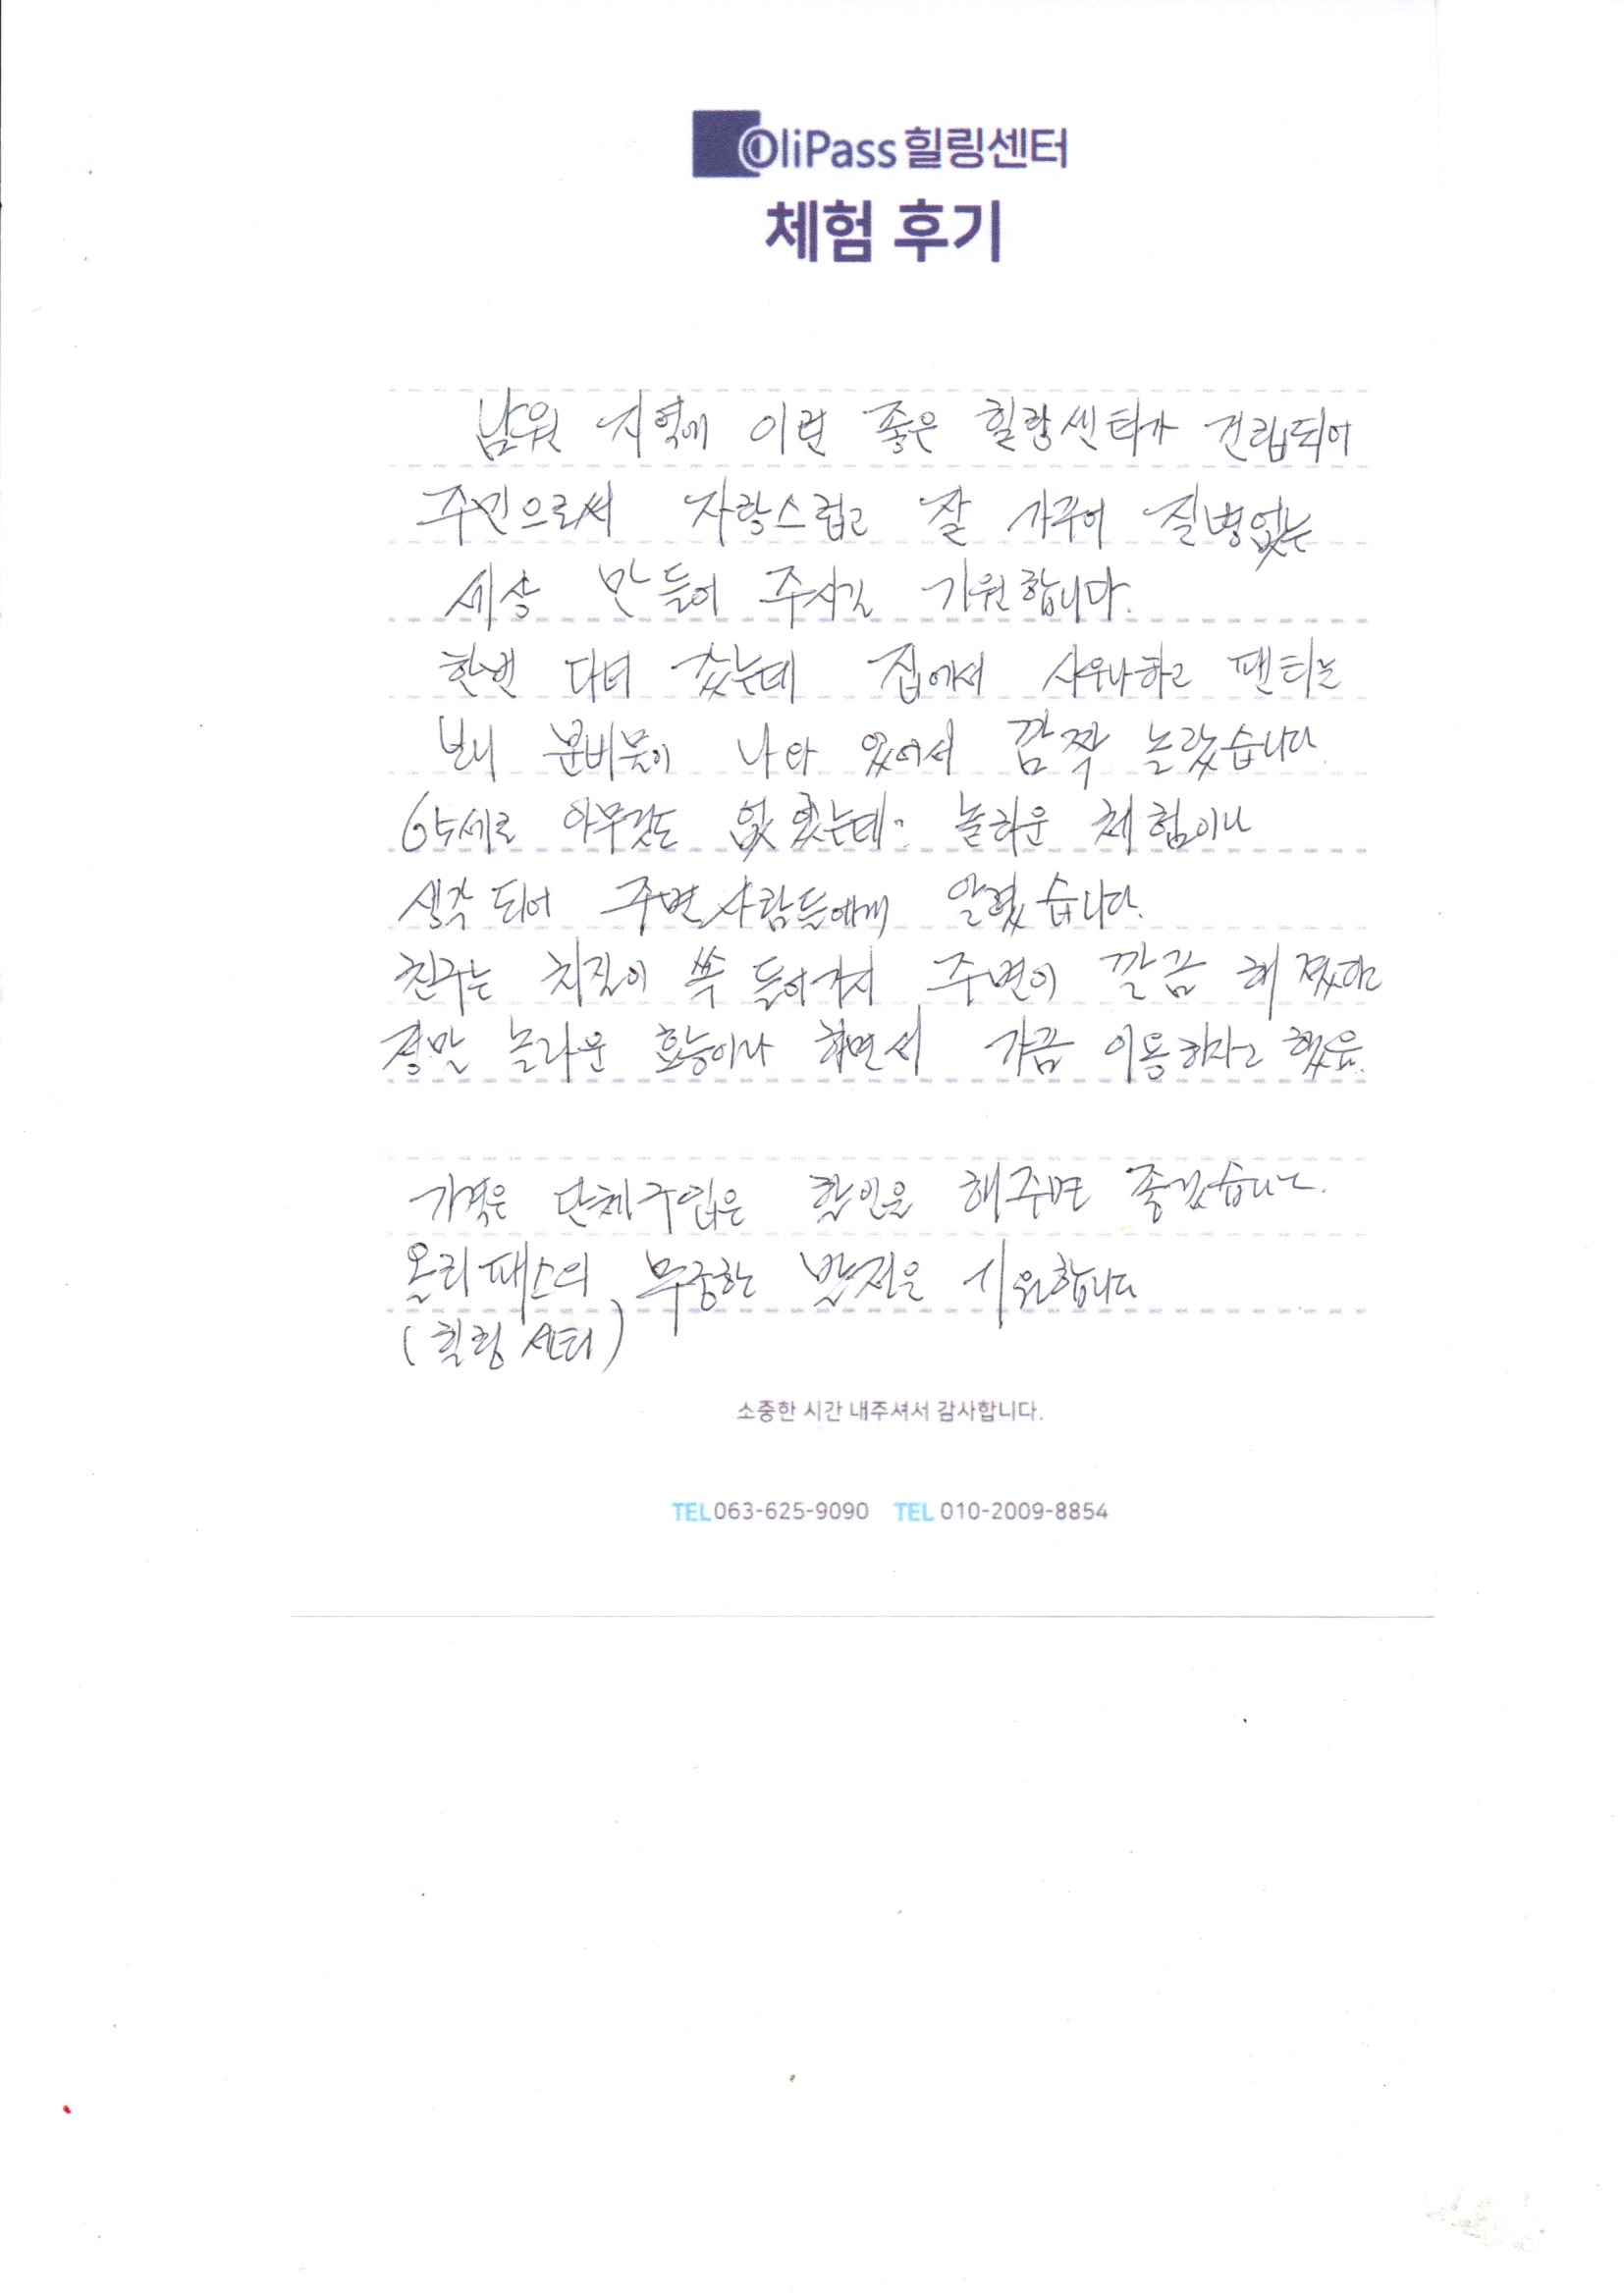 OliPass 힐링센터
체험 후기
남원 지역에 이런 좋은 힐링센터가 건립되어
주민으로써 자랑스럽고 잘 가꾸어 질병없는
세상 만들어 주시길 기원합니다.
한번 다녀 갔는데 집에서 샤워하고 팬티를
보니 분비물이 나와 있어서 깜짝 놀랐습니다
65세로 아무것도 없었는데.. 놀라운 체험이나
생각되어 주변사람들에게 알렸습니다.
친구는 치질이 쏙 들어가서 주변이 깔끔 해 졌다고
정말 놀라운 효능이라 하면서 가끔 이용하자고 했음.
가격은 단체구입은 할인을 해주면 좋겠습니다.
올리패스의 무궁한 발전을 기원합니다
(힐링센터)
소중한 시간 내주셔서 감사합니다.
TEL 063-625-9090 TEL 010-2009-8854